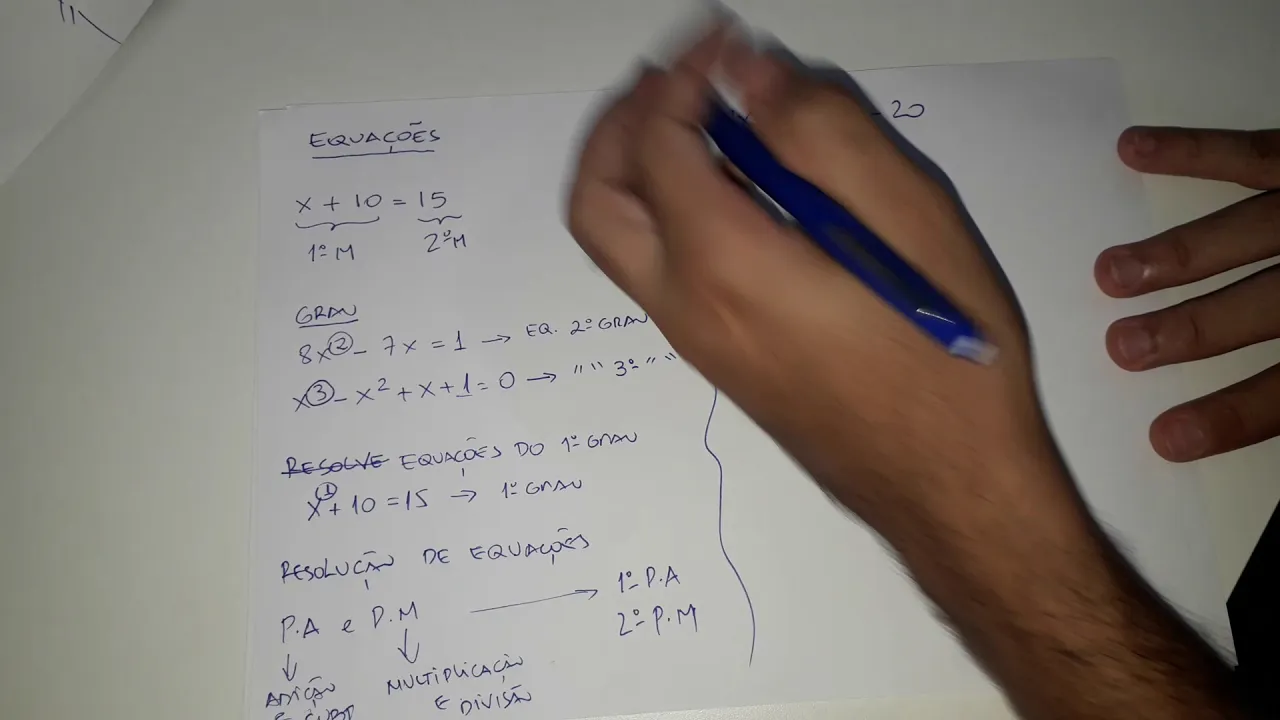 EQUAÇÕES
x + 10 = 15
1º M 2º M
GRAU
8x² - 7x = 1 → EQ. 2º GRAU
x³ - x² + x + 1 = 0 → " " 3º " "
RESOLVE EQUAÇÕES DO 1º GRAU
x¹ + 10 = 15 → 1º GRAU
RESOLUÇÃO DE EQUAÇÕES
P.A e P.M → 1º P.A
2º P.M
↓ ↓
ADIÇÃO MULTIPLICAÇÃO
E DIVISÃO
- 20